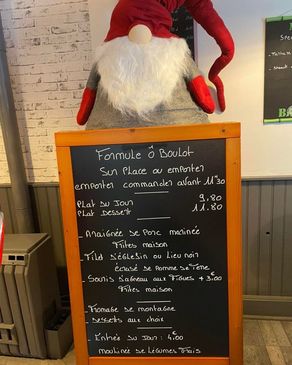 Formule Ô Boulot
Sur Place ou emporter
emporter commander avant 11h30
Plat du Jour 9,80
Plat Dessert 11.80
- Araignée de Porc marinée
Frites maison
- Filet d'églefin ou Lieu noir
écrasé de Pomme de Terre
- Souris d'agneau aux Figues + 3,00€
Frites maison
- Fromage de montagne
- Desserts aux choix
- Entrée du Jour : 4,00€
mouliné de légumes frais